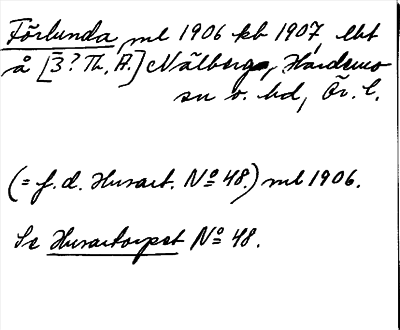 Förlunda ml 1906 kb 1907, lht
å [3? Th. A.] Nälberga, Hardemo
sn o. hd, Ör. l.
(= f. d. Husart. No 48.) ml 1906.
Se Husartorpet No 48.